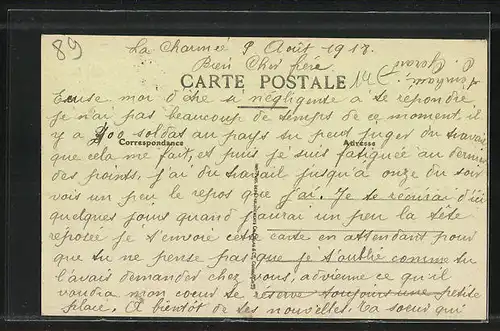 89
La Charmée 9 Août 1917.
Bien Cher frère
CARTE POSTALE
Correspondance
Adresse
Excuse moi d'être si négligente à te repondre
je n'ai pas beaucoup de temps de ce moment, il
y a 400 soldats au pays tu peut juger du travail
que cela me fait, et puis je suis fatiguée au dernier
des points, j'ai du travail jusqu'à onze du soir
vois un peu le repos que j'ai. Je te récrirai d'ici
quelques jours quand j'aurai un peu la tête
reposée je t'envoie cette carte en attendant pour
que tu ne pense pas que je t'oublie comme tu
l'avais demandes chez vous, advienne ce qu'il
voudra mon coeur te réserve toujours une petite
place. A bientôt de tes nouvelles. Ta soeur qui